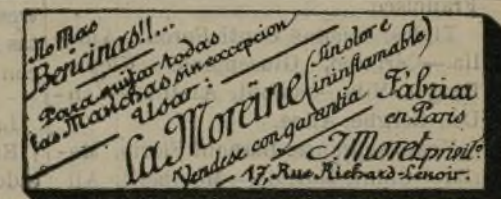 No Mas
Bencinas!!...
Para quitar todas
las Manchas sin excepcion
Usar:
La Moreïne (sin olor e
ininflamable)
Vendese con garantia
Fábrica
en Paris
J. Moret privil°
17, Rue Richard-Lenoir.